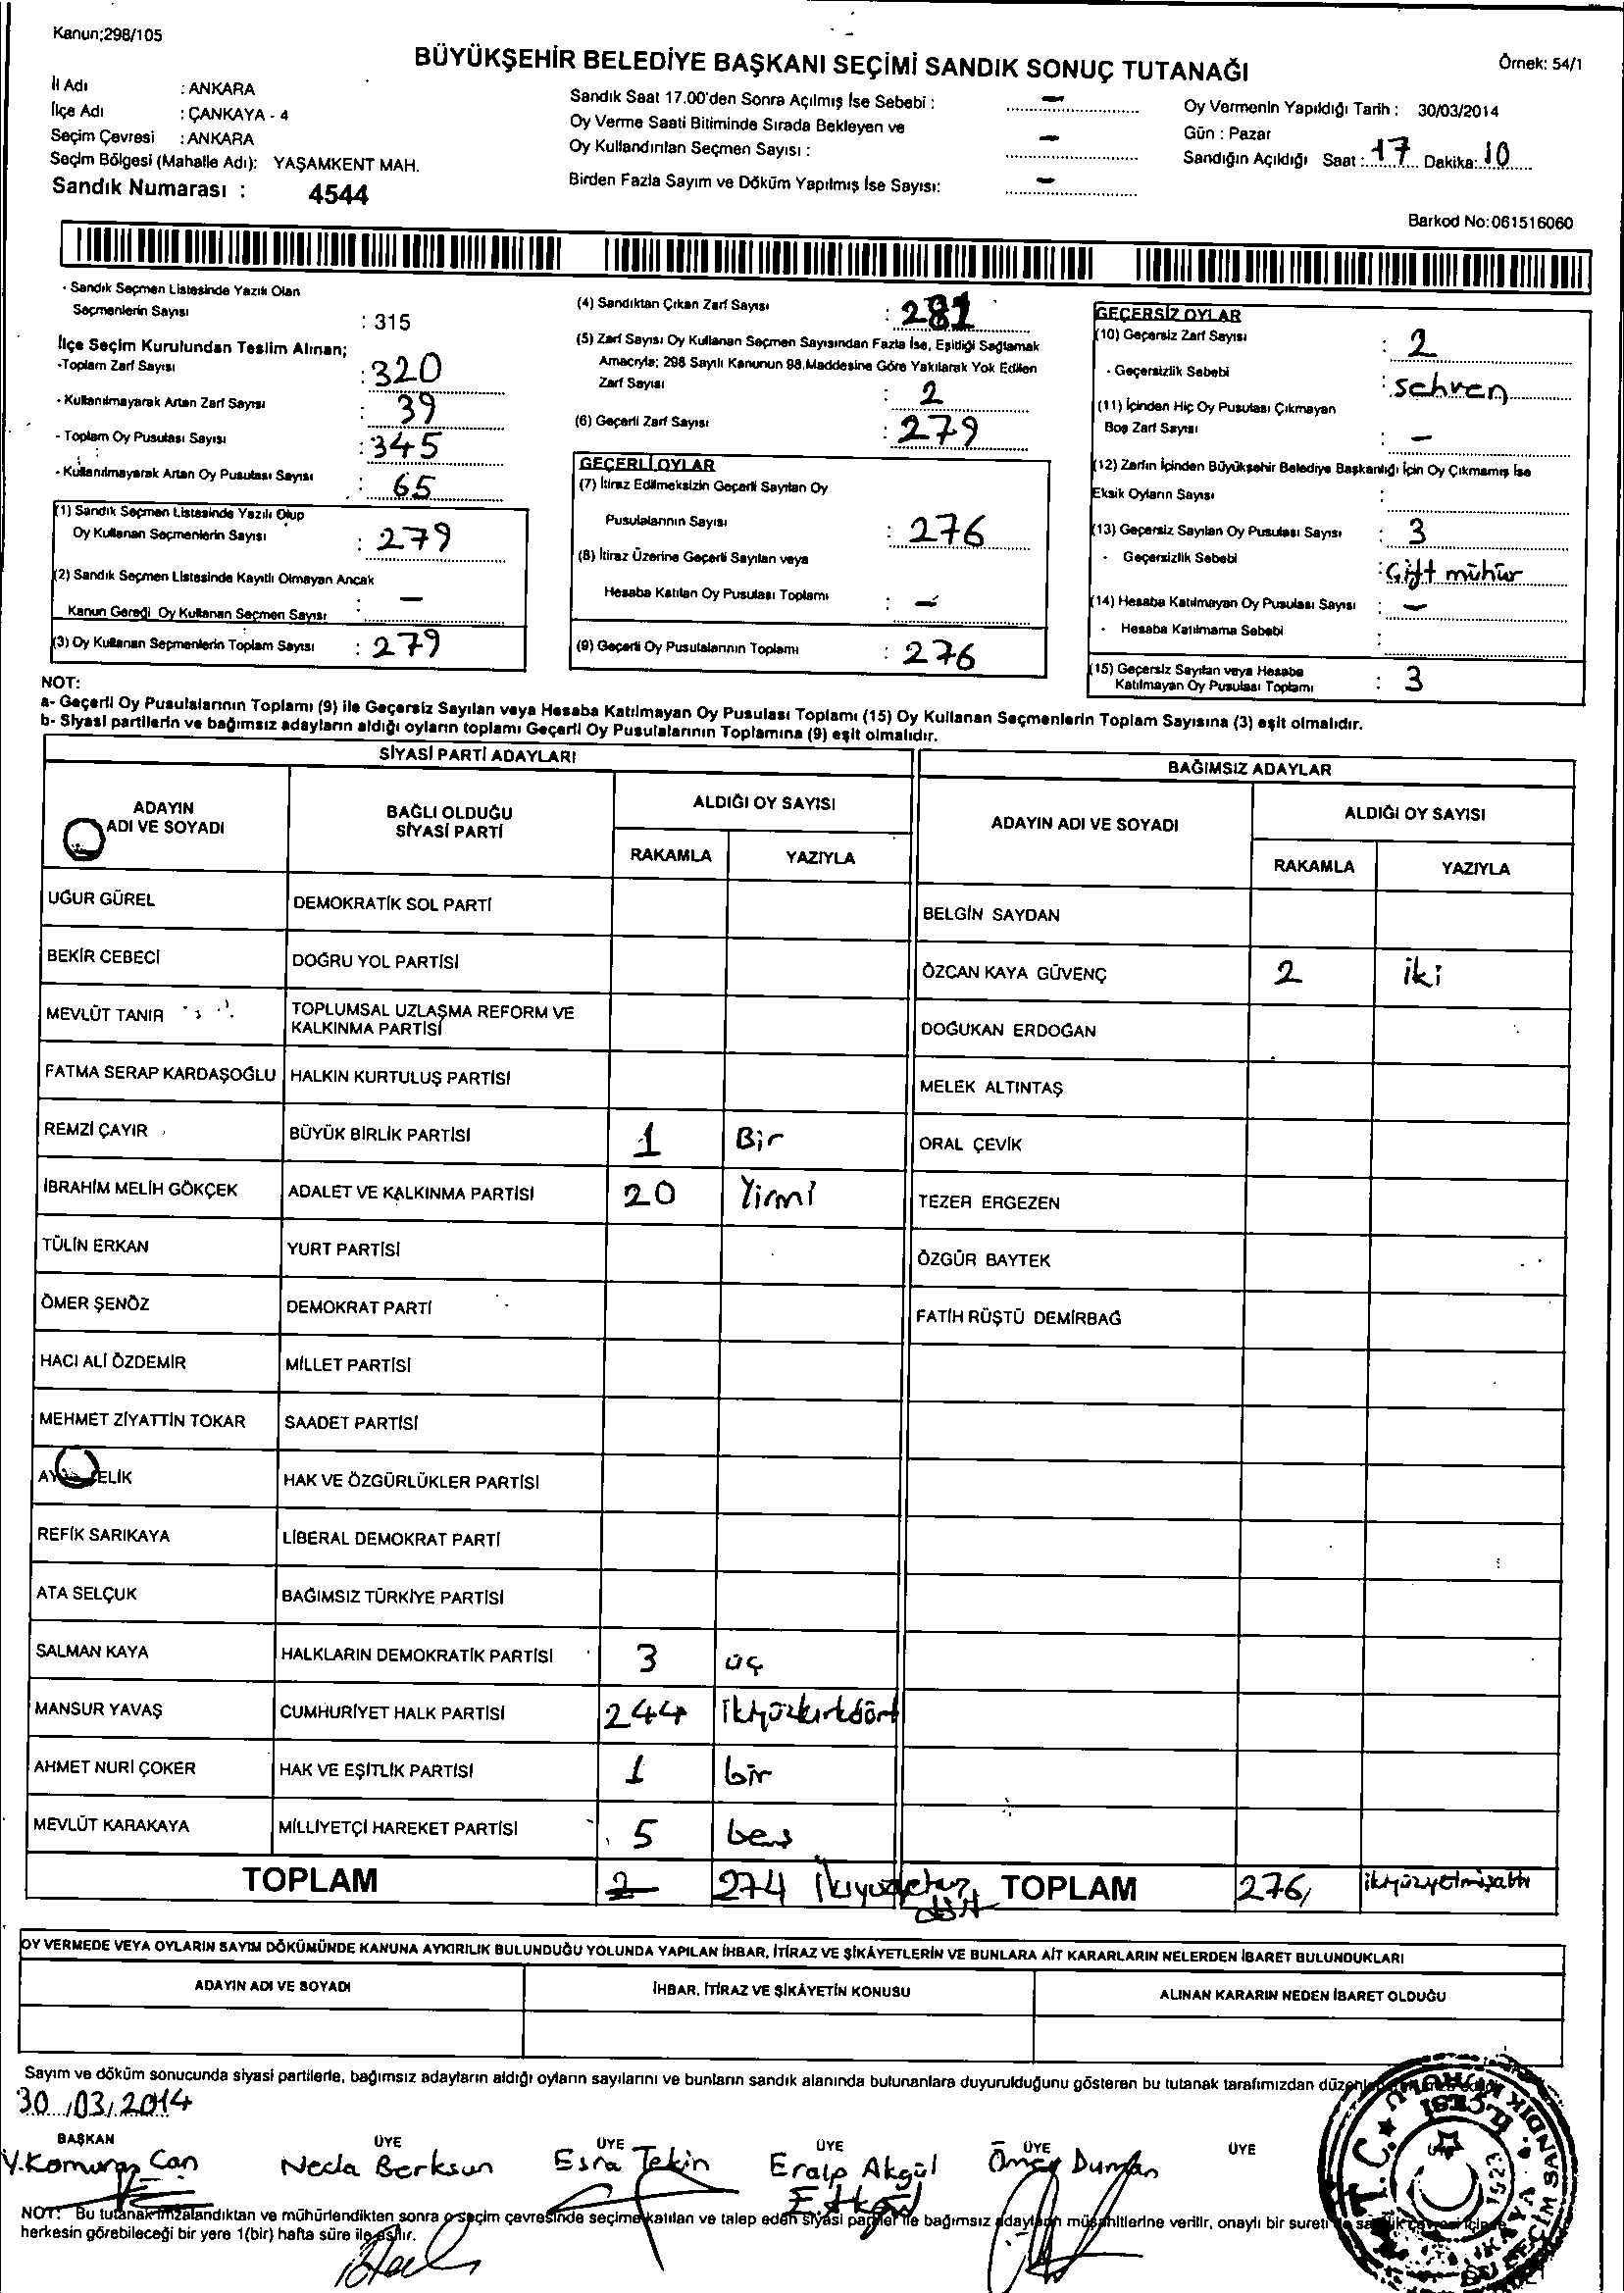 Kanun;298/105
BÜYÜKŞEHİR BELEDİYE BAŞKANI SEÇİMİ SANDIK SONUÇ TUTANAĞI
Örnek: 54/1
İl Adı : ANKARA
İlçe Adı : ÇANKAYA - 4
Seçim Çevresi : ANKARA
Seçim Bölgesi (Mahalle Adı): YAŞAMKENT MAH.
Sandık Numarası : 4544
Sandık Saat 17.00'den Sonra Açılmış İse Sebebi : -
Oy Verme Saati Bitiminde Sırada Bekleyen ve
Oy Kullandırılan Seçmen Sayısı : -
Birden Fazla Sayım ve Döküm Yapılmış İse Sayısı: -
Oy Vermenin Yapıldığı Tarih : 30/03/2014
Gün : Pazar
Sandığın Açıldığı Saat : 17 Dakika: 10
Barkod No:061516060
- Sandık Seçmen Listesinde Yazılı Olan
Seçmenlerin Sayısı : 315
İlçe Seçim Kurulundan Teslim Alınan;
-Toplam Zarf Sayısı : 320
- Kullanılmayarak Artan Zarf Sayısı : 39
- Toplam Oy Pusulası Sayısı : 345
- Kullanılmayarak Artan Oy Pusulası Sayısı : 65
(1) Sandık Seçmen Listesinde Yazılı Olup
Oy Kullanan Seçmenlerin Sayısı : 279
(2) Sandık Seçmen Listesinde Kayıtlı Olmayan Ancak
Kanun Gereği Oy Kullanan Seçmen Sayısı : -
(3) Oy Kullanan Seçmenlerin Toplam Sayısı : 279
(4) Sandıktan Çıkan Zarf Sayısı : 281
(5) Zarf Sayısı Oy Kullanan Seçmen Sayısından Fazla İse, Eşitliği Sağlamak
Amacıyla; 298 Sayılı Kanunun 98.Maddesine Göre Yakılarak Yok Edilen
Zarf Sayısı : 2
(6) Geçerli Zarf Sayısı : 279
GEÇERLİ OYLAR
(7) İtiraz Edilmeksizin Geçerli Sayılan Oy
Pusulalarının Sayısı : 276
(8) İtiraz Üzerine Geçerli Sayılan veya
Hesaba Katılan Oy Pusulası Toplamı : -
(9) Geçerli Oy Pusulalarının Toplamı : 276
GEÇERSİZ OYLAR
(10) Geçersiz Zarf Sayısı : 2
- Geçersizlik Sebebi : sehven
(11) İçinden Hiç Oy Pusulası Çıkmayan
Boş Zarf Sayısı : -
(12) Zarfın İçinden Büyükşehir Belediye Başkanlığı İçin Oy Çıkmamış İse
Eksik Oyların Sayısı :
(13) Geçersiz Sayılan Oy Pusulası Sayısı : 3
- Geçersizlik Sebebi : Çift mühür
(14) Hesaba Katılmayan Oy Pusulası Sayısı : -
- Hesaba Katılmama Sebebi :
(15) Geçersiz Sayılan veya Hesaba
Katılmayan Oy Pusulası Toplamı : 3
NOT:
a- Geçerli Oy Pusulalarının Toplamı (9) ile Geçersiz Sayılan veya Hesaba Katılmayan Oy Pusulası Toplamı (15) Oy Kullanan Seçmenlerin Toplam Sayısına (3) eşit olmalıdır.
b- Siyasi partilerin ve bağımsız adayların aldığı oyların toplamı Geçerli Oy Pusulalarının Toplamına (9) eşit olmalıdır.
SİYASİ PARTİ ADAYLARI
ADAYIN ADI VE SOYADI
BAĞLI OLDUĞU SİYASİ PARTİ
ALDIĞI OY SAYISI
RAKAMLA YAZIYLA
BAĞIMSIZ ADAYLAR
ADAYIN ADI VE SOYADI
ALDIĞI OY SAYISI
RAKAMLA YAZIYLA
UĞUR GÜREL DEMOKRATİK SOL PARTİ BELGİN SAYDAN
BEKİR CEBECİ DOĞRU YOL PARTİSİ ÖZCAN KAYA GÜVENÇ 2 iki
MEVLÜT TANIR TOPLUMSAL UZLAŞMA REFORM VE KALKINMA PARTİSİ DOĞUKAN ERDOĞAN
FATMA SERAP KARDAŞOĞLU HALKIN KURTULUŞ PARTİSİ MELEK ALTINTAŞ
REMZİ ÇAYIR BÜYÜK BİRLİK PARTİSİ 1 Bir ORAL ÇEVİK
İBRAHİM MELİH GÖKÇEK ADALET VE KALKINMA PARTİSİ 20 Yirmi TEZER ERGEZEN
TÜLİN ERKAN YURT PARTİSİ ÖZGÜR BAYTEK
ÖMER ŞENÖZ DEMOKRAT PARTİ FATİH RÜŞTÜ DEMİRBAĞ
HACI ALİ ÖZDEMİR MİLLET PARTİSİ
MEHMET ZİYATTİN TOKAR SAADET PARTİSİ
HAK VE ÖZGÜRLÜKLER PARTİSİ
REFİK SARIKAYA LİBERAL DEMOKRAT PARTİ
ATA SELÇUK BAĞIMSIZ TÜRKİYE PARTİSİ
SALMAN KAYA HALKLARIN DEMOKRATİK PARTİSİ 3 üç
MANSUR YAVAŞ CUMHURİYET HALK PARTİSİ 244 ikiyüzkırkdört
AHMET NURİ ÇOKER HAK VE EŞİTLİK PARTİSİ 1 bir
MEVLÜT KARAKAYA MİLLİYETÇİ HAREKET PARTİSİ 5 beş
TOPLAM 2 274 TOPLAM 276, ikiyüzyetmişaltı
OY VERMEDE VEYA OYLARIN SAYIM DÖKÜMÜNDE KANUNA AYKIRILIK BULUNDUĞU YOLUNDA YAPILAN İHBAR, İTİRAZ VE ŞİKÂYETLERİN VE BUNLARA AİT KARARLARIN NELERDEN İBARET BULUNDUKLARI
ADAYIN ADI VE SOYADI İHBAR, İTİRAZ VE ŞİKÂYETİN KONUSU ALINAN KARARIN NEDEN İBARET OLDUĞU
Sayım ve döküm sonucunda siyasi partilerle, bağımsız adayların aldığı oyların sayılarını ve bunların sandık alanında bulunanlara duyurulduğunu gösteren bu tutanak tarafımızdan
30/03/2014
BAŞKAN ÜYE ÜYE ÜYE ÜYE ÜYE
Y.Komuran Can Necla Berksun Esra Tekin Eralp Akgül Ömer Duman
NOT: Bu tutanak imzalandıktan ve mühürlendikten sonra o seçim çevresinde seçime katılan ve talep eden siyasi partiler ile bağımsız adayların müşahitlerine verilir, onaylı bir sureti
herkesin görebileceği bir yere 1(bir) hafta süre ile asılır.
T.C.